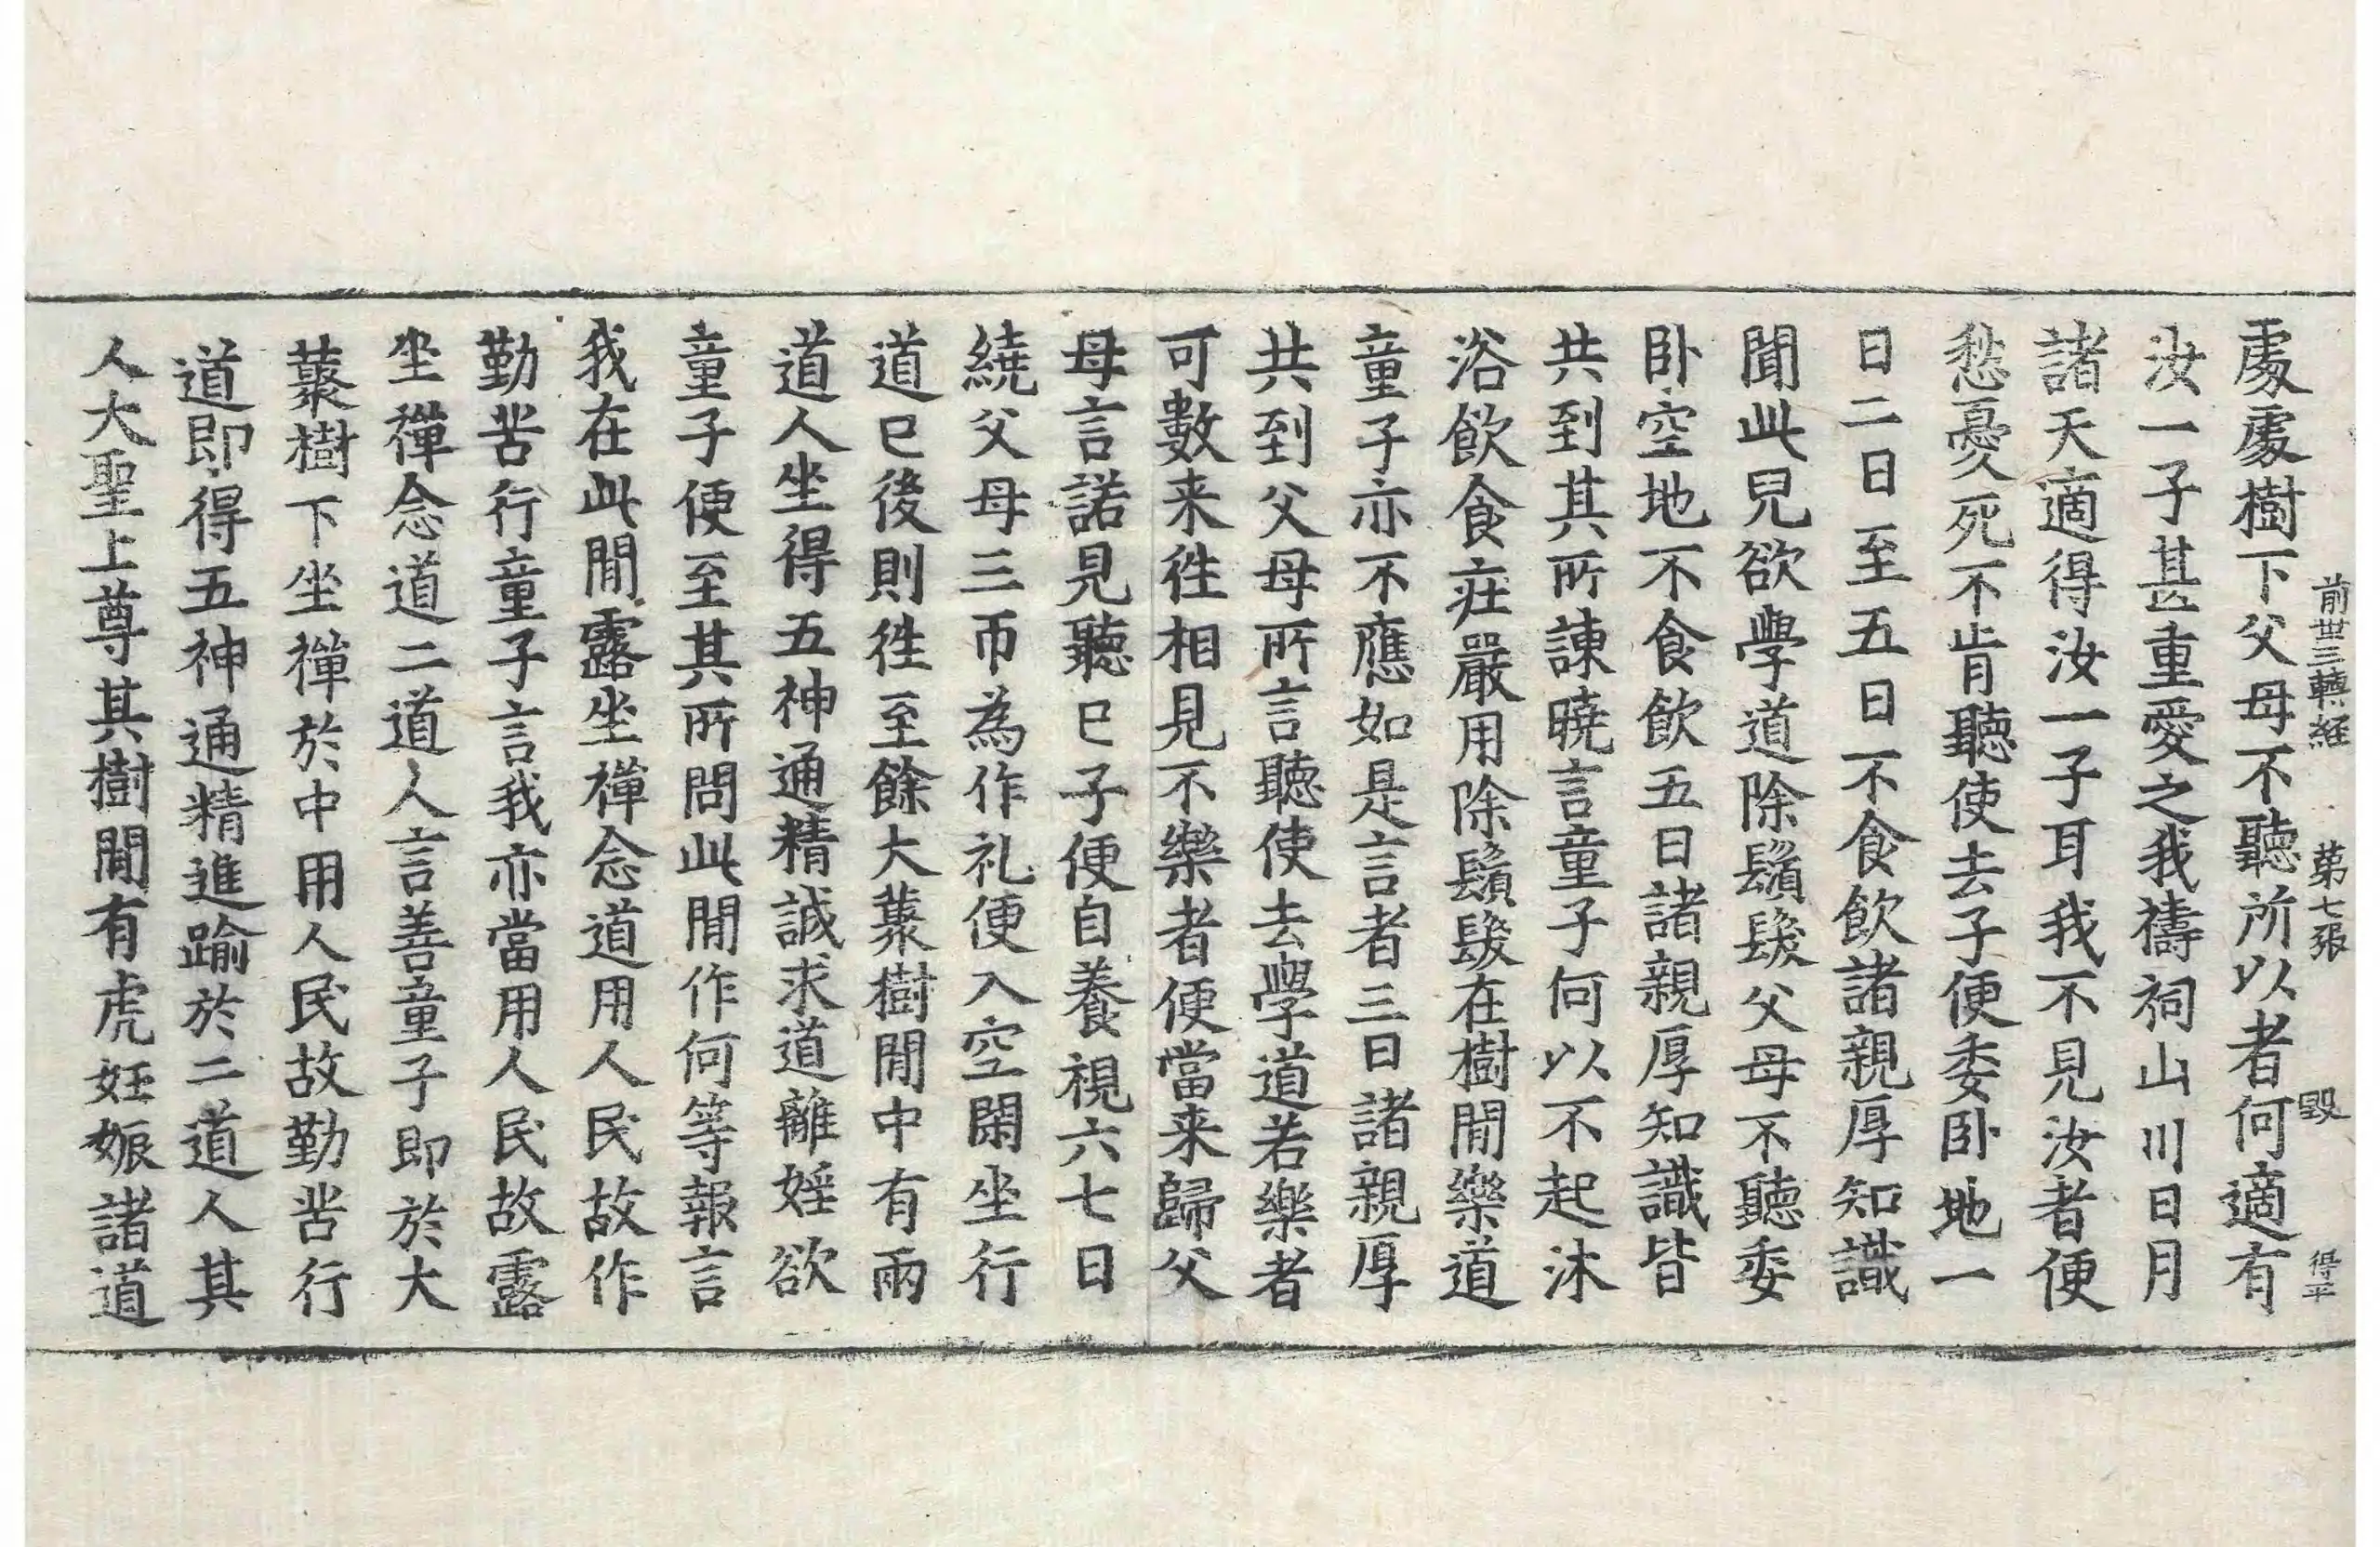 前世三轉經 第七張 毀 得平
處處樹下父母不聽所以者何適有
汝一子甚重愛之我禱祠山川日月
諸天適得汝一子耳我不見汝者便
愁憂死不肯聽使去子便委卧地一
日二日至五日不食飲諸親厚知識
聞此兒欲學道除鬚髮父母不聽委
卧空地不食飲五日諸親厚知識皆
共到其所諫曉言童子何以不起沐
浴飲食莊嚴用除鬚髮在樹間樂道
童子亦不應如是言者三日諸親厚
共到父母所言聽使去學道若樂者
可數来徃相見不樂者便當来歸父
母言諾見聽已子便自養視六七日
繞父母三帀為作礼便入空閑坐行
道已後則徃至餘大藂樹間中有兩
道人坐得五神通精誠求道離婬欲
童子便至其所問此間作何等報言
我在此間露坐禪念道用人民故作
勤苦行童子言我亦當用人民故露
坐禪念道二道人言善童子即於大
藂樹下坐禪於中用人民故勤苦行
道即得五神通精進踰於二道人其
人大聖上尊其樹間有虎妊娠諸道